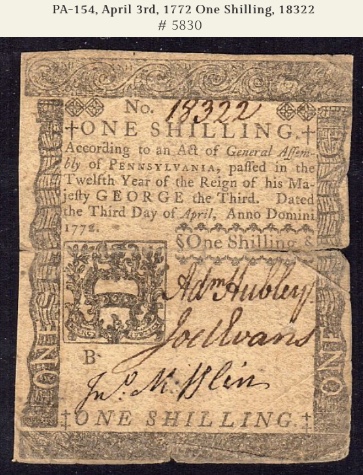 PA-154, April 3rd, 1772 One Shilling, 18322
# 5830
No. 18322
‡ONE SHILLING.‡
According to an Act of General Assem-
bly of PENNSYLVANIA, paſſed in the
Twelfth Year of the Reign of his Ma-
jeſty GEORGE the Third. Dated
the Third Day of April, Anno Domini
1772.
§One Shilling.§
Adm Hubley
Joel Evans
B
Jno. Mifflin
‡ONE SHILLING.‡
ONE SHILLING
ONE SHILLING